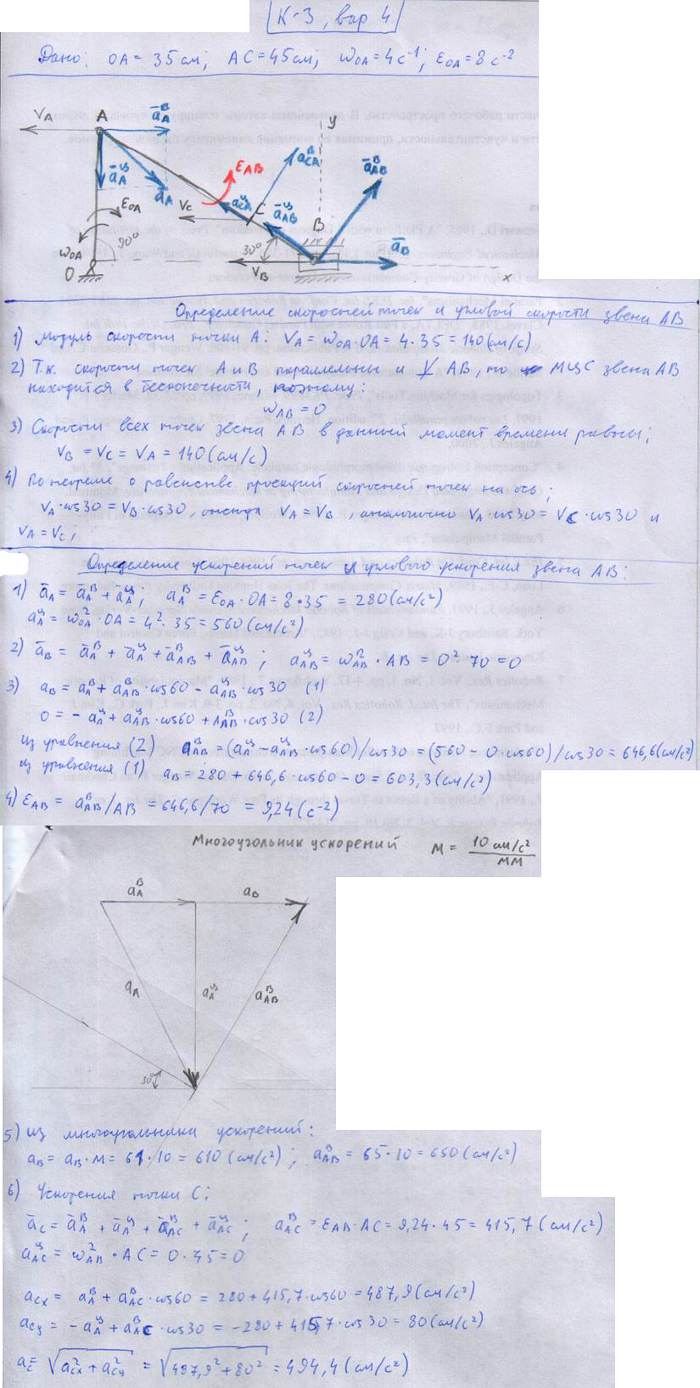 К-3, вар 4
Дано: OA = 35 см; AC = 45 см; ω_OA = 4 с⁻¹; ε_OA = 8 с⁻²
V_A A ā_A^В y
ā_A^ц ā_A ε_AB a_CA^В ā_AB^В
ε_OA a_CA^ц ā_AB^ц
V_C C B ā_B
ω_OA 90° 30°
O V_B x
Определение скоростей точек и угловой скорости звена AB
1) модуль скорости точки A: V_A = ω_OA · OA = 4 · 35 = 140 (см/с)
2) Т.к. скорости точек A и B параллельны и ⊥ AB, то МЦС звена AB
находится в бесконечности, поэтому:
ω_AB = 0
3) Скорости всех точек звена AB в данный момент времени равны;
V_B = V_C = V_A = 140 (см/с)
4) По теореме о равенстве проекций скоростей точек на ось;
V_A · cos30 = V_B · cos30, откуда V_A = V_B, аналогично V_A · cos30 = V_C · cos30 и
V_A = V_C;
Определение ускорений точек и углового ускорения звена AB:
1) ā_A = ā_A^В + ā_A^ц; a_A^В = ε_OA · OA = 8 · 35 = 280 (см/с²)
a_A^ц = ω²_OA · OA = 4² · 35 = 560 (см/с²)
2) ā_B = ā_A^В + ā_A^ц + ā_AB^В + ā_AB^ц; a_AB^ц = ω²_AB · AB = 0² · 70 = 0
3) a_B = a_A^В + a_AB^В · cos60 - a_AB^ц · cos30 (1)
0 = - a_A^ц + a_AB^ц · cos60 + a_AB^В · cos30 (2)
из уравнения (2) a_AB^В = (a_A^ц - a_AB^ц · cos60)/cos30 = (560 - 0 · cos60)/cos30 = 646,6 (см/с²)
из уравнения (1) a_B = 280 + 646,6 · cos60 - 0 = 603,3 (см/с²)
4) ε_AB = a_AB^В/AB = 646,6/70 = 9,24 (с⁻²)
Многоугольник ускорений M = 10 см/с² / мм
a_A^В a_B
a_A a_A^ц a_AB^В
30°
5) из многоугольника ускорений:
a_B = a_B · M = 61 · 10 = 610 (см/с²); a_AB^В = 65 · 10 = 650 (см/с²)
6) Ускорения точки C:
ā_C = ā_A^В + ā_A^ц + ā_AC^В + ā_AC^ц; a_AC^В = ε_AB · AC = 9,24 · 45 = 415,7 (см/с²)
a_AC^ц = ω²_AB · AC = 0 · 45 = 0
a_Cx = a_A^В + a_AC^В · cos60 = 280 + 415,7 · cos60 = 487,9 (см/с²)
a_Cy = - a_A^ц + a_AC^В · cos30 = -280 + 415,7 · cos30 = 80 (см/с²)
a_C = √(a²_Cx + a²_Cy) = √(487,9² + 80²) = 494,4 (см/с²)